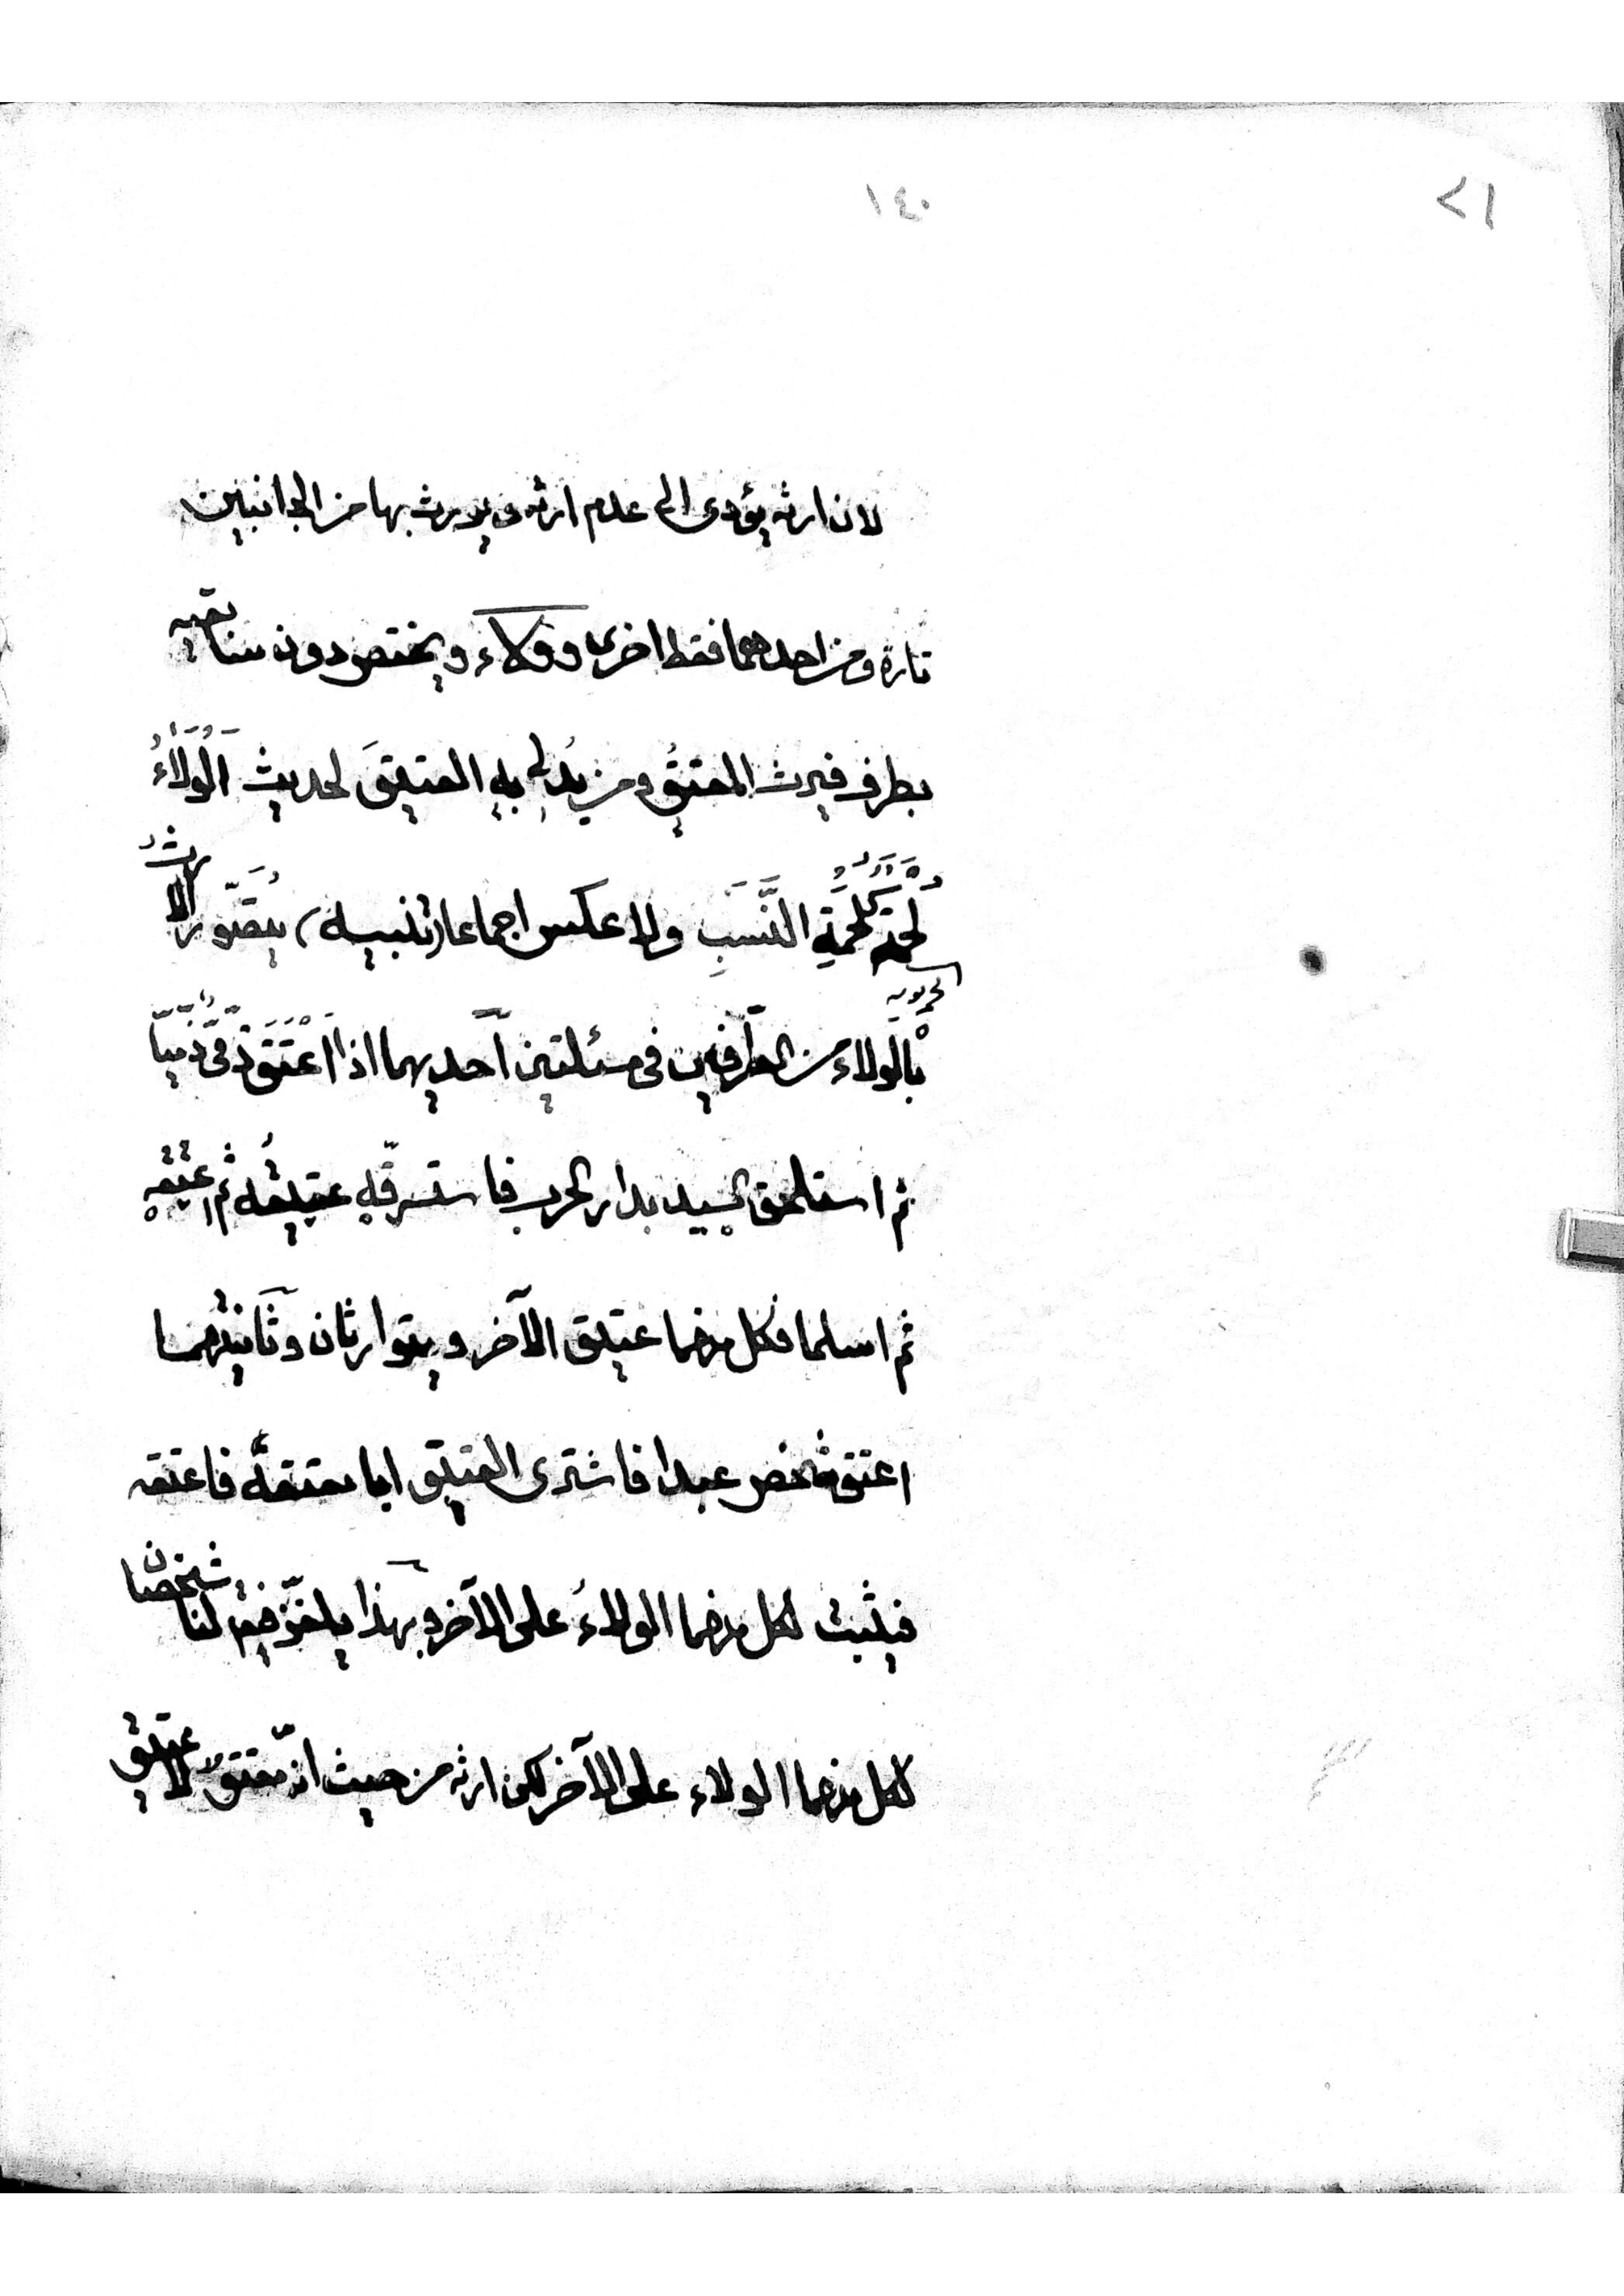 ٢١
١٤٠
لان ارثه يؤدى الى عدم ارثه و يورث بها من الجانبين
تارة ومن احدهما فقط اخرى وولاء ويختص دون سابقيه
بطرف فيرث المعتِق ومن يدلى به العتيقَ لحديث اَلْوَلَاءُ
لُحْمَةٌ كَلُحْمَةِ النَّسَبِ ولا عكس اجماعا (تنبيه) يتصَوّر الارث
بالولاء من الطرفين فى مسئلتين اَحديهما اذا اعْتَقَ ذِمِّىٌّ ذِمّيّاً
الحربى
ثم استلحق السيد بدار الحرب فاسترقّه عتيقُه ثم اعتقه
ثم اسلما فكل منهما عتيق الآخر ويتوارثان وثانيتهما
اعتق شخص عبدا فاشترى العتيق ابا معتقه فاعتقه
فيثبت لكل منهما الولاءُ على الآخر وبهذا يلغز فيقال لنا شخصان
لكل منهما الولاء على الآخر لكن ارثه من حيث انّه معتق لا عتيق